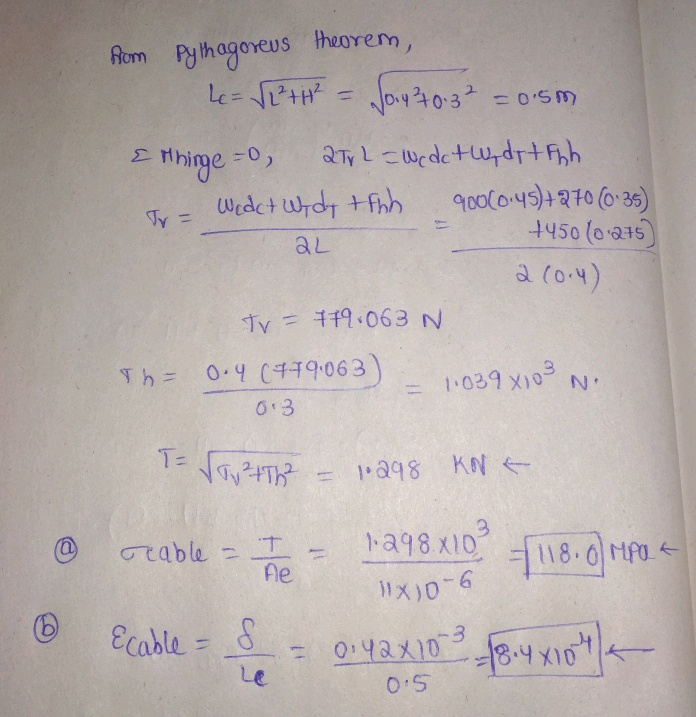 From Pythagoreus theorem,
Lc = √L²+H² = √0.4²+0.3² = 0.5m
Σ Mhinge = 0, 2Tv L = Wcdc + WTdT + Fhh
Tv = (Wcdc + WTdT + Fhh) / 2L = (900(0.45) + 270(0.35) + 450(0.275)) / 2(0.4)
Tv = 779.063 N
Th = 0.4 (779.063) / 0.3 = 1.039 x10³ N.
T = √Tv²+Th² = 1.298 KN ←
(a) σcable = T / Ae = 1.298 x10³ / 11x10-6 = 118.0 MPa ←
(b) Ecable = δ / Le = 0.42x10-3 / 0.5 = 8.4x10-4 ←